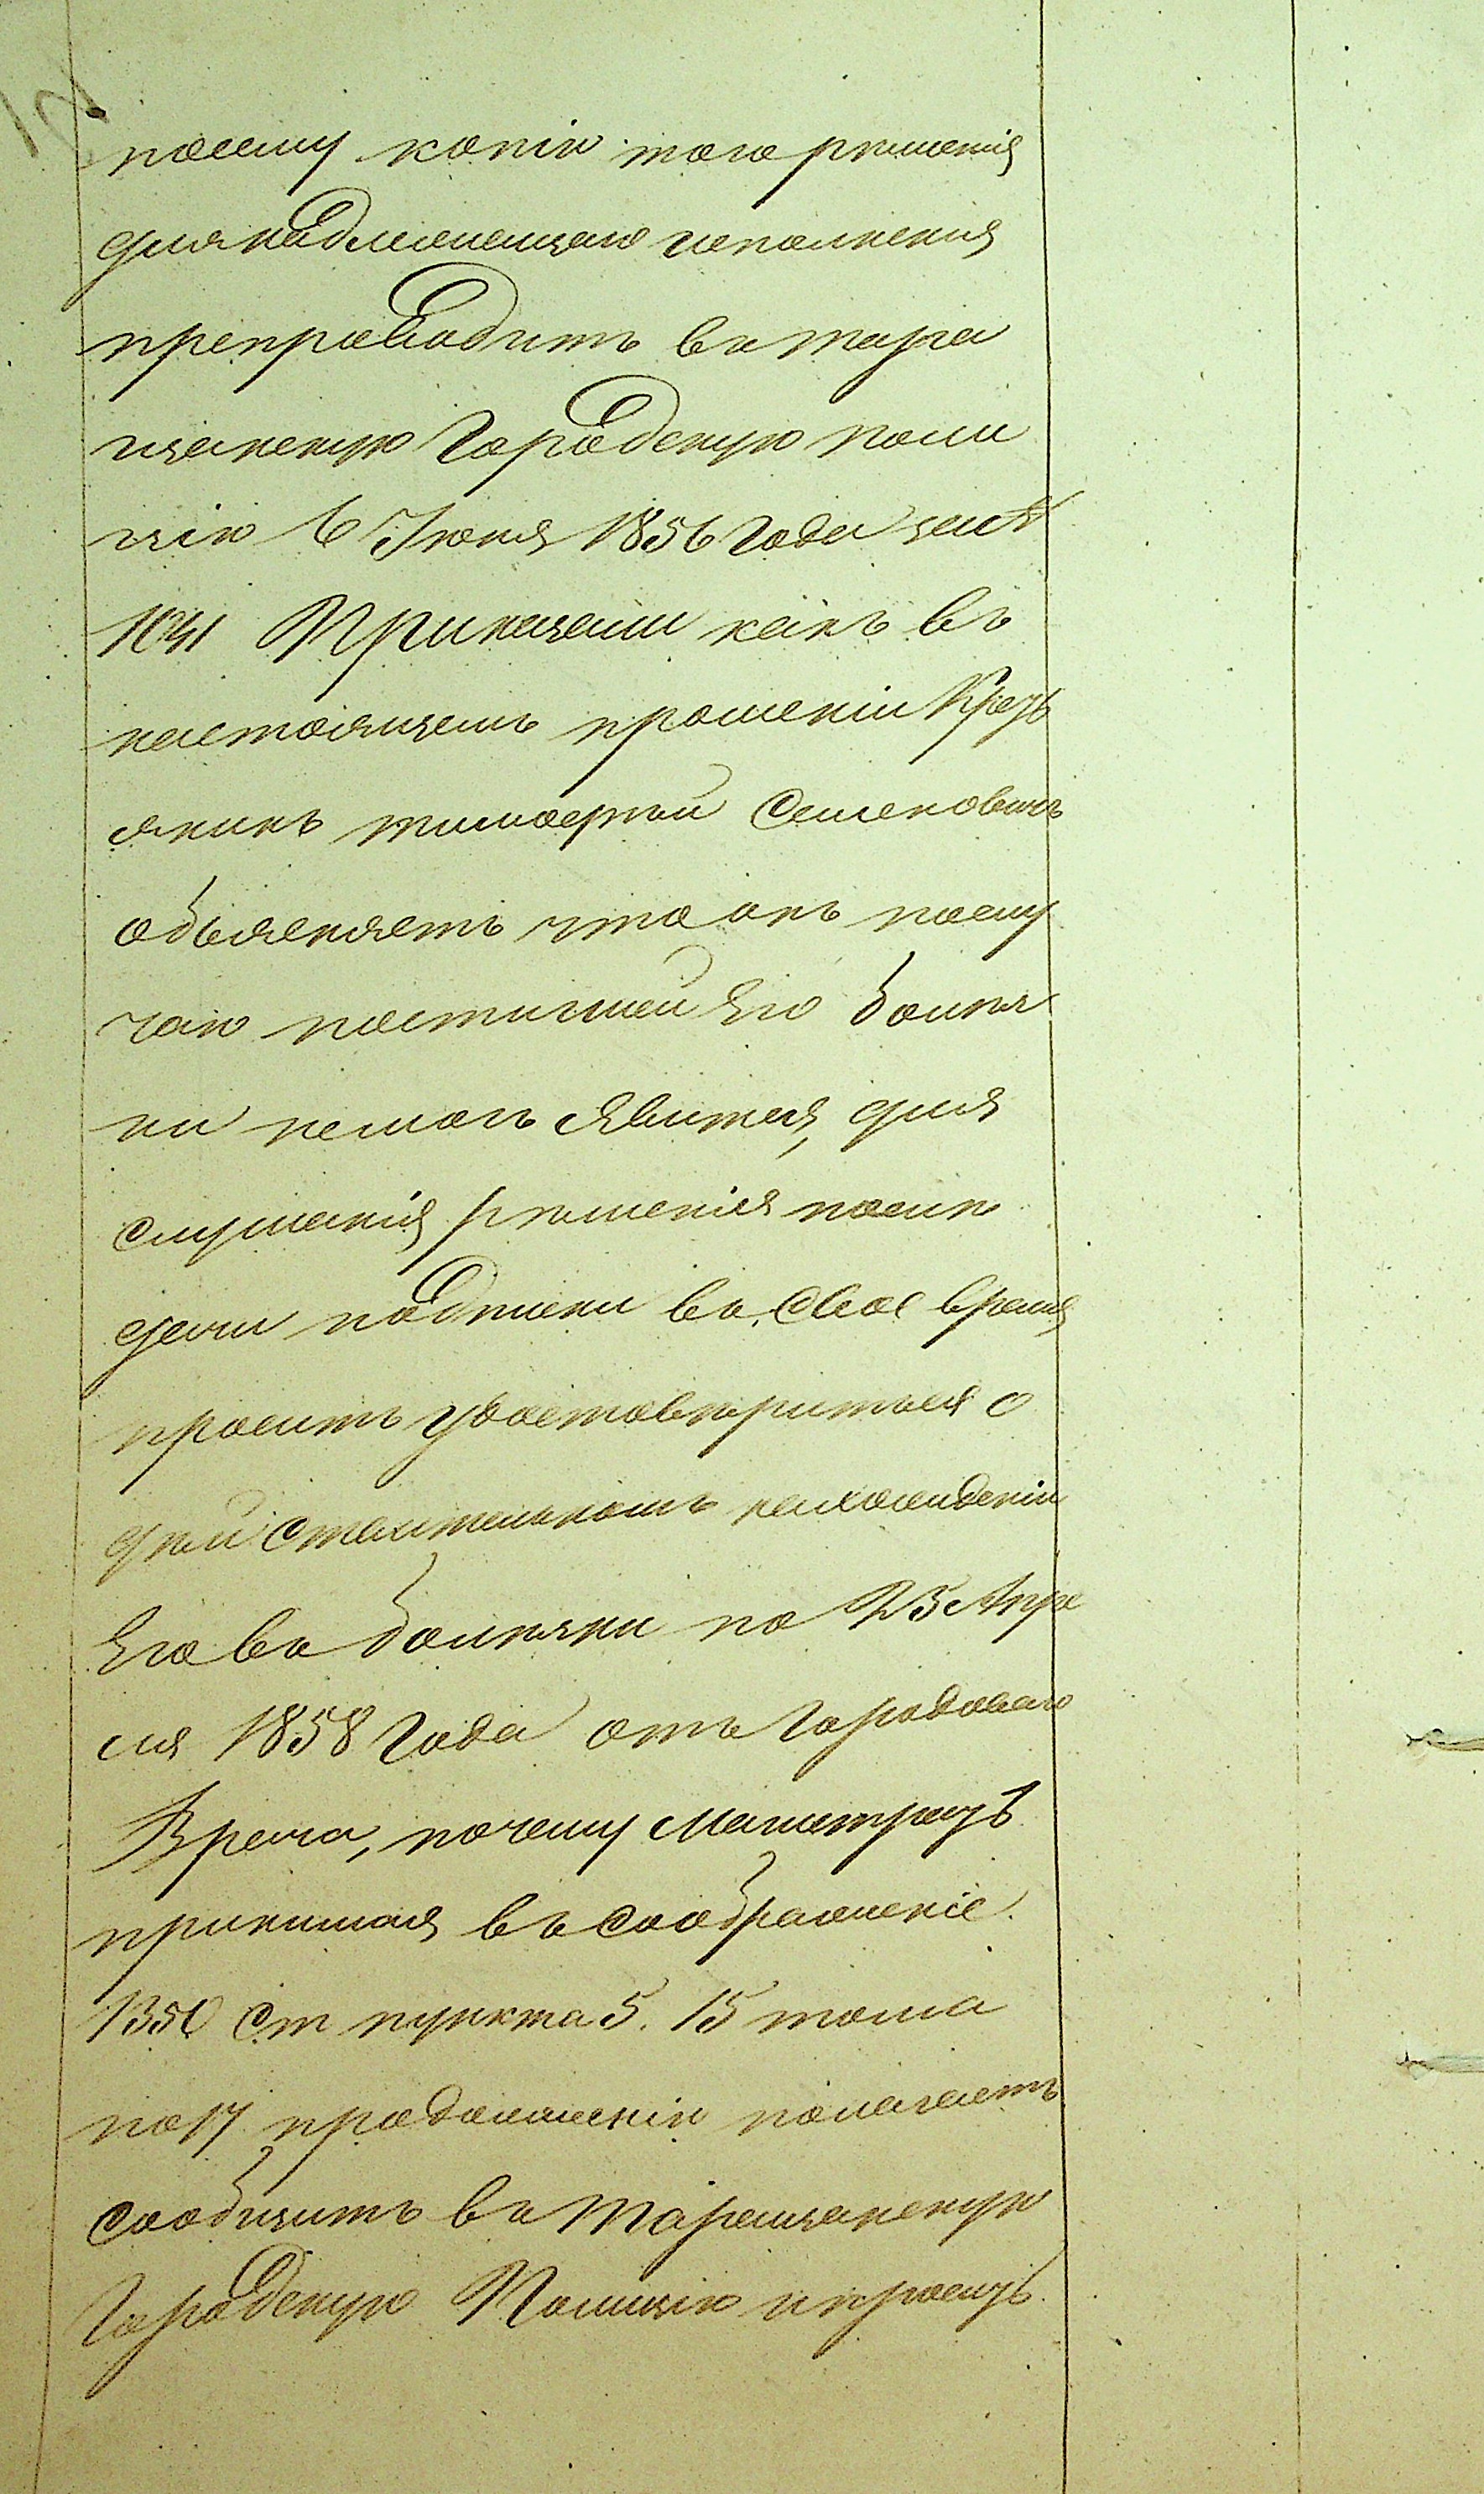 посему копію того рѣшенія
для надлежащаго исполненія
препроводить въ тара
щанскую Городскую поли
цію 6 Іюня 1856 года за №
1041 Приказали какъ въ
настоящемъ прошеніи
тимофтѣй Семеновичъ
объясняетъ что онъ послу
чаю постигшей Его болѣз
ни немогъ явится, для
слушанія рѣшенія
дачи подписки въ свое время
проситъ удостовѣрится о
дѣйствительномъ нахожденіи
Его въ болѣзни по 25 Апре
ля 1858 года отъ Городоваго
Врача, почему Магистратъ
принимая въ соображеніе
1350 Ст пункта 5. 15 тома
по 17 продолженію полагаетъ
сообщить въ Таращанскую
Городскую Полицію и проситъ